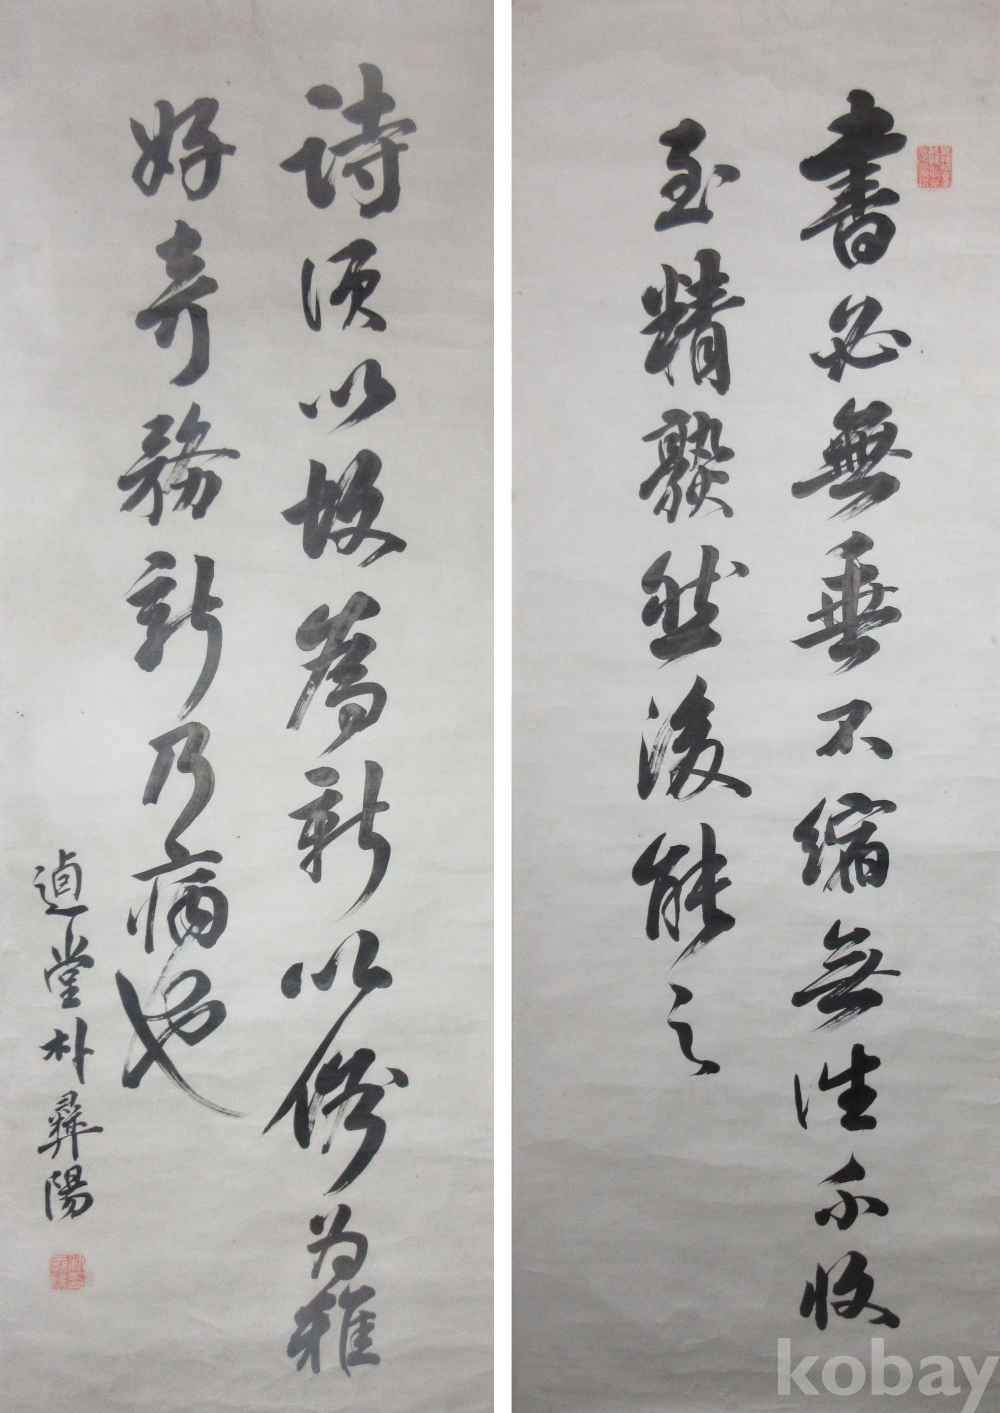 書必無垂不縮無往不收
至精熟然後能之
詩須以故為新以俗為雅
好奇務新乃病也
逌堂朴彛陽
kobay